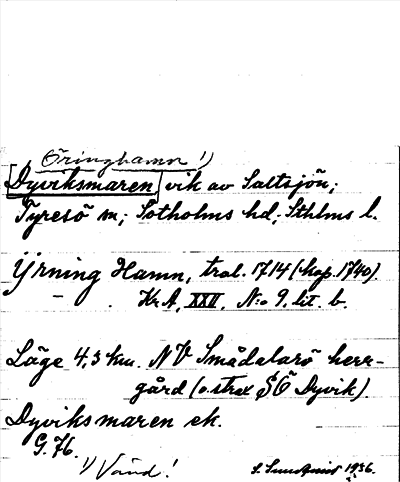 Öringhamn 1)
Dyviksmaren vik av Saltsjön;
Tyresö sn; Sotholms hd; Sthlms l.
Yrning Hamn, tral. 1714 (kop. 1740)
Kr A, XXII, N:o 9. lit. b.
Läge 4,3 km. NV Smådalarö herr-
gård (o. strax SÖ Dyvik).
Dyviksmaren ek.
G. 76.
1) Vänd!
1936.